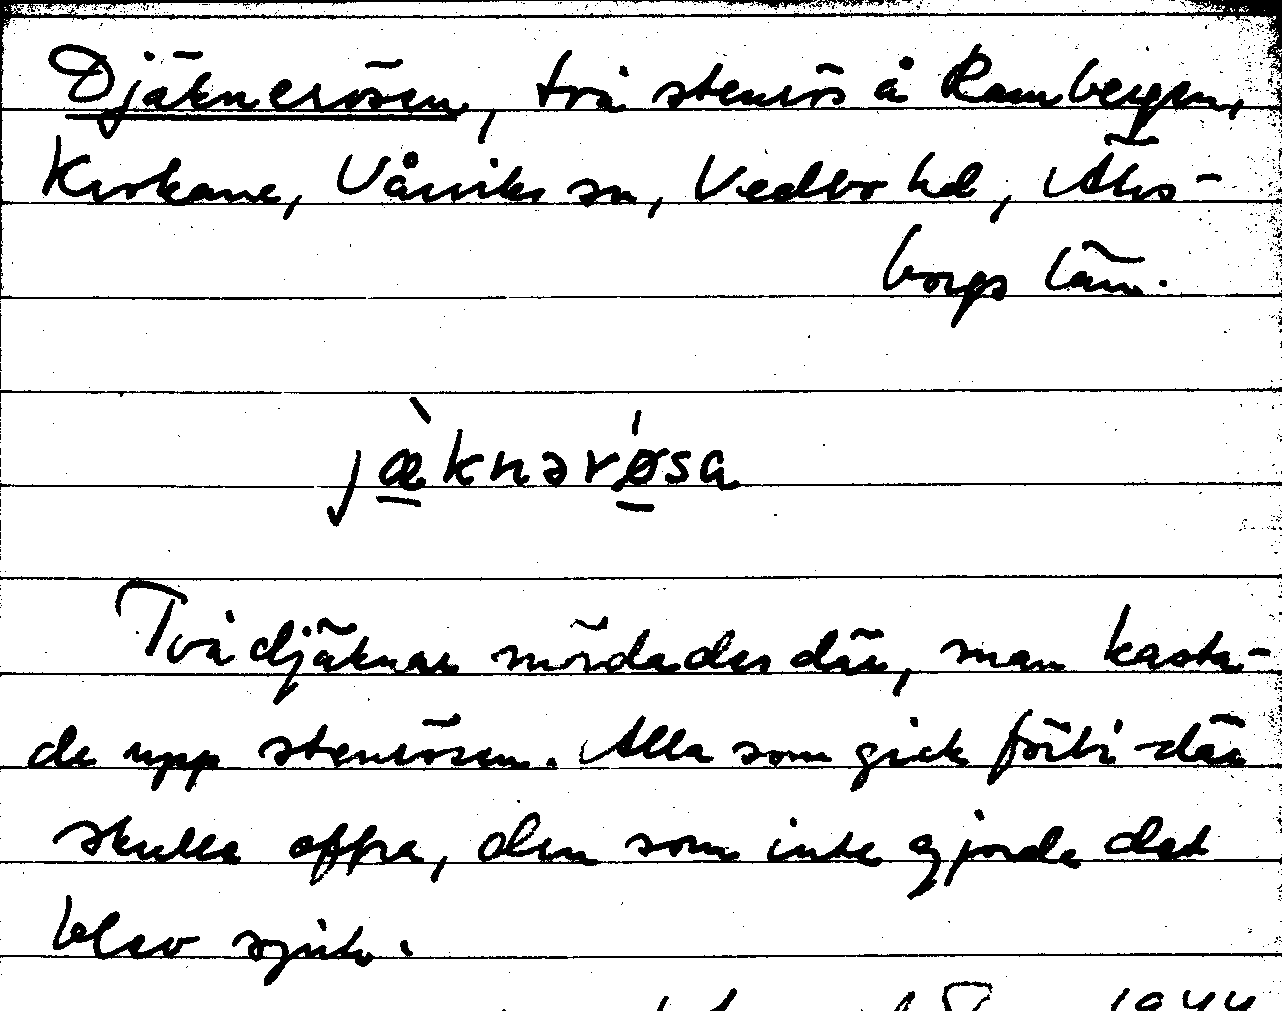 Djäknerösen, två stenrös å Rambergen,
Krokane, Vårviks sn, Vedbo hd, Älvs-
borgs län.
jæ̀knərǿsa
Två djäknar mördades där, man kasta-
de upp stenrösen. Alla som gick förbi där
skulle offra, den som inte gjorde det
blev sjuk.
1944